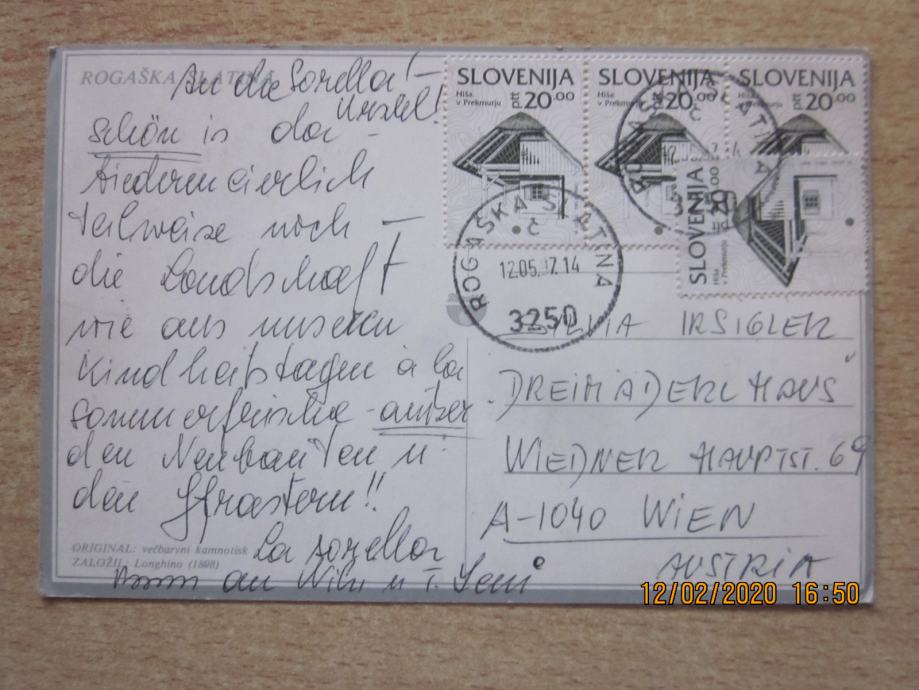 ROGAŠKA SLATINA
An die Sorella! –
schön is da –
tiederencierlich
Teilweise noch –
die Landschaft
wie aus unseren
Kindheitstagen a la
Sommerfrische – außer
den Neubauten u.
den Gfrastern!!
La Sorella
an Willi u.
ORIGINAL: večbarvni kamnotisk
ZALOŽIL: Longhino (1898)
SLOVENIJA
Hiša
v Prekmurju
ptt 20.00
SLOVENIJA
Hiša
v Prekmurju
ptt 20.00
SLOVENIJA
ptt 20.00
SLOVENIJA
Hiša
v Prekmurju
ptt 20.00
ROGAŠKA SLATINA
č
12.05.97.14
3250
IRSIGLER
DREIMÄDERL HAUS
WIEDNER HAUPTST. 69
A-1040 WIEN
AUSTRIA
12/02/2020 16:50